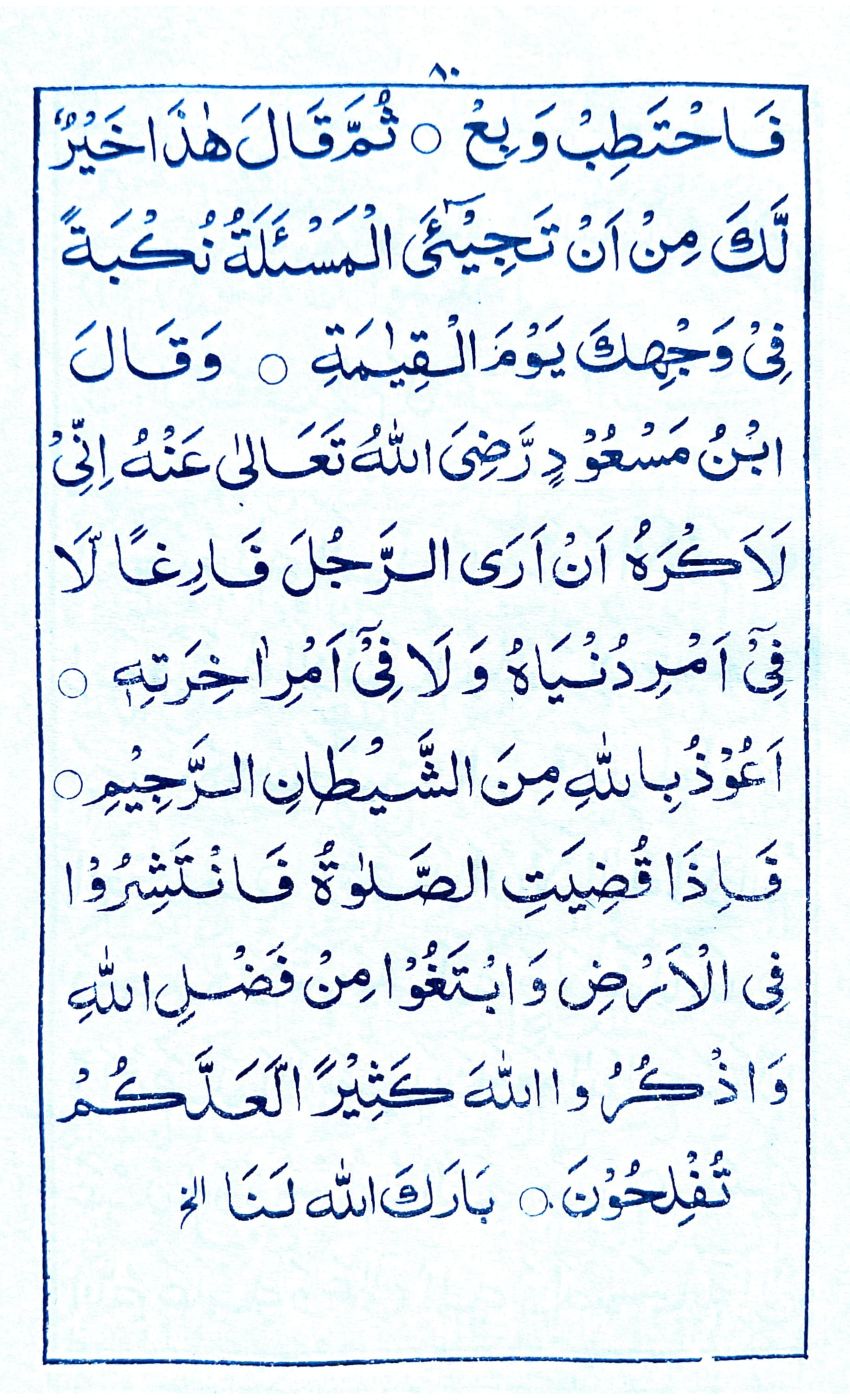 ٨٠
فَاحْتَطِبْ وَبِعْ ○ ثُمَّ قَالَ هٰذَا خَيْرٌ
لَّكَ مِنْ اَنْ تَجِيْٓئَ الْمَسْئَلَةُ نُكْبَةً
فِيْ وَجْهِكَ يَوْمَ الْقِيٰمَةِ ○ وَقَالَ
ابْنُ مَسْعُوْدٍ رَّضِيَ اللّٰهُ تَعَالٰى عَنْهُ اِنِّيْ
لَاَكْرَهُ اَنْ اَرَى الرَّجُلَ فَارِغًا لَّا
فِيْٓ اَمْرِ دُنْيَاهُ وَلَا فِيْٓ اَمْرِ اٰخِرَتِهٖ ○
اَعُوْذُ بِاللّٰهِ مِنَ الشَّيْطَانِ الرَّجِيْمِ ○
فَاِذَا قُضِيَتِ الصَّلٰوةُ فَانْتَشِرُوْا
فِى الْاَرْضِ وَابْتَغُوْا مِنْ فَضْلِ اللّٰهِ
وَاذْكُرُوا اللّٰهَ كَثِيْرًا لَّعَلَّكُمْ
تُفْلِحُوْنَ ○ بَارَكَ اللّٰه لَنَا الخ